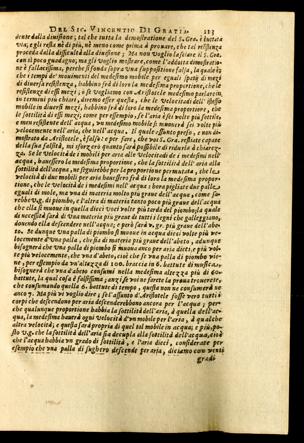 DEL SIG. VINCENTIO DI GRATIA. 223
dente dalla diuisione; tal che tutta la demostratione del S. Gra. è buttata
via, e gli resta nè di più, nè meno come prima à prouare, che tal resistenza
proceda dalla difficultà alla diuisione; Ma non voglio lasciare il S.
can si poco guadagno, ma gli voglio mostrare, come l'addutta dimostratio-
ne è fallacissima, perche si fonda sopra vna suppositione falsa, la quale è
che i tempi de' mouimenti del medesimo mobile per eguali spatij di mezi
di diuersa resistenza, habbino frà di loro la medesima proportione, che le
resistenze de' mezi; e si vogliamo con Aristotele, e medesimamente parlare
in termini più chiari, diremo esser questa, che le Velocità dell' istesso
mobile in diuersi mezi, habbino frà di loro la medesima proportione, che
le sottilità di essi mezi; come per esempio, se l'aria è sei volte più sottile,
e men resistente dell' acqua, vn medesimo mobile si mouerà sei volte più
velocemente nell' aria, che nell' acqua. Il quale assunto preso, e non di-
mostrato da Aristotele, è falso: e per fare, che voi S. Gra. restiate capace
della sua falsità, mi sforzerò quanto sarà possibile di ridurla à chiarez-
za. Se le Velocità de i mobili per aria alle Velocità de i medesimi nell'
acqua, hauessero la medesima proportione, che la sottilità dell' aria alla
sottilità dell' acqua, ne seguirebbe per la proportione permutata, che le
velocità de due mobili per aria hauessero frà di loro la medesima propor-
tione, che le Velocità de i medesimi nell' acqua: hora pigliate due palle
eguali di mole, ma vna di materia molto più graue dell' acqua, come sa-
rebbe v.g. di piombo, e l'altra di materia tanto poco più graue dell' acqua
che ella si muouin in quella dieci volte più tardo del piombo; la quale
di necessità sarà di vna materia più graue di tutti i legni che galleggiano,
douendo ella descendere nell' acqua; e però sarà v. gr. più graue dell' abe-
to. Se dunque vna palla di piombo si muoue in acqua dieci volte più ve-
locemente d' vna palla, che sia di materia più graue dell' abeto, adunque
bisognerà che vna palla di piombo si muoua anco per aria dieci, e più vol-
te più velocemente, che vna d'abeto, tal che se vna palla di piombo vie-
ne, per essempio da vn' altezza di 100. braccia in 6. battute di musica,
bisognerà che vna d'abeto consumi nella medesima altezza più di 60.
battute, la qual cosa è falsissima; anzi se voi ne farete la proua trouerete,
che consumando quella 6. battute di tempo, questa non ne consumerà ne
anco 7. Ma più vi voglio dire; se l'assunto d'Aristotele fosse vero tutti i
corpi che descendono per aria descenderebbono ancora per l'acqua; per
che qualunque proportione habbia la sottilità dell' aria, à quella dell' ac-
qua, la medesima haurà ogni Velocità d'vn mobile per l'aria, à qualche
altra velocità, e questa sarà propria di quel tal mobile in acqua; e più, po-
sto v.g. che la sottilità dell' aria sia decupla alla sottilità dell' acqua, cioè
che l'acqua habbia vn grado di sottilità, e l'aria dieci, considerate per
esempio che vna palla di sughero descende per aria, diciamo con venti
gradi